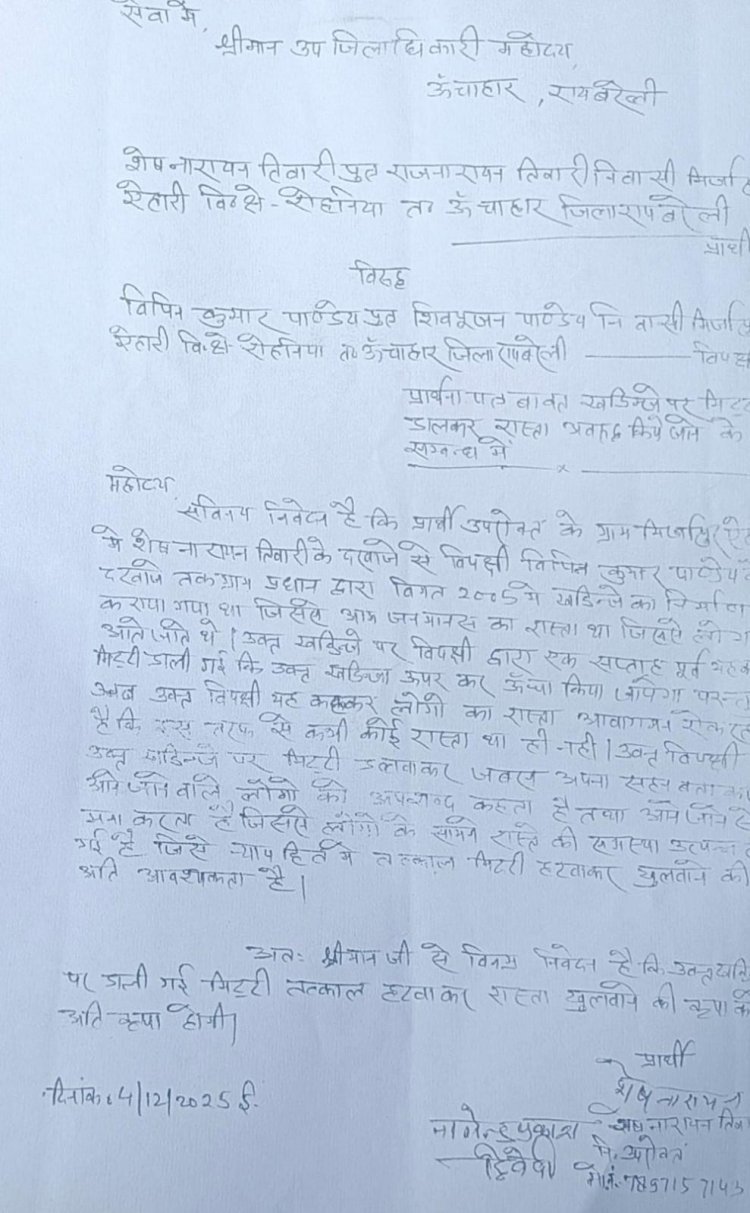 सेवा में,
श्रीमान उप जिलाधिकारी महोदय,
ऊँचाहार, रायबरेली
शेष नारायन तिवारी पुत्र राजनारायन तिवारी निवासी
ऐहारी वि०क्षे०-रोहनिया त० ऊँचाहार जिला रायबरेली
प्रार्थी
विरुद्ध
विपिन कुमार पाण्डेय पुत्र शिवभूजन पाण्डेय निवासी
ऐहारी वि०क्षे०-रोहनिया त० ऊँचाहार जिला रायबरेली
प्रार्थना पत्र बावत खडिन्जे पर
डालकर रास्ता अवरुद्ध किये जाने के
सम्बन्ध में
महोदय,
सविनय निवेदन है कि प्रार्थी उपरोक्त के ग्राम
मे शेष नारायन तिवारी के दरवाजे से विपक्षी विपिन कुमार पाण्डेय
दरवाजे तक ग्राम प्रधान द्वारा विगत 2005 मे खडिन्जे का निर्माण
कराया गया था जिससे आम जनमानस का रास्ता था जिससे लोग
आते जाते थे | उक्त खडिन्जे पर विपक्षी द्वारा एक सप्ताह पूर्व
मिट्टी डाली गई कि उक्त खडिन्जा ऊपर कर ऊँचा किया जायेगा
अब उक्त विपक्षी यह कहकर लोगो का रास्ता आवागमन
है कि इस तरफ से कभी कोई रास्ता था ही नही | उक्त विपक्षी
उक्त खडिन्जे पर मिट्टी डलवाकर जबरन अपना सहन
आने जाने वाले लोगो को अपशब्द कहता है तथा आने जाने से
मना करता है जिससे लोगो के सामने रास्ते की समस्या उत्पन्न
गई है जिसे न्याय हित मे तत्काल मिट्टी हटवाकर खुलवाने की
अति आवश्यकता है |
अतः श्रीमान जी से विनम्र निवेदन है कि उक्त
पर डाली गई मिट्टी तत्काल हटवाकर रास्ता खुलवाने की कृपा
अति कृपा होगी |
प्रार्थी
शेष नारायन
दिनांक 4/12/2025 ई.
नागेन्द्र प्रकाश
शेष नारायन
द्विवेदी
नि. उपरोक्त
मो.नं.